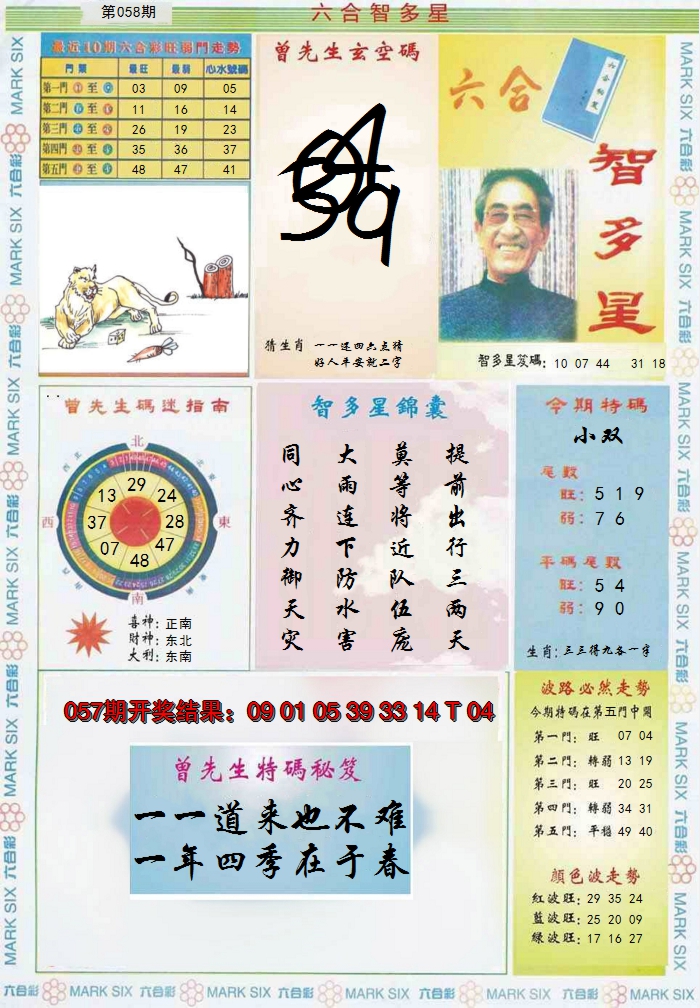 第058期
六合智多星
最近10期六合彩旺弱門走勢
門類 最旺 最弱 心水號碼
第一門 至 03 09 05
第二門 至 11 16 14
第三門 至 26 19 23
第四門 至 35 36 37
第五門 至 48 47 41
曾先生玄空碼
猜生肖 一一还四六点猜
好人平安就二字
六合
智多星
智多星笈碼: 10 07 44 31 18
曾先生碼迷指南
北
東
南
西
29
24
28
47
48
07
37
13
喜神: 正南
財神: 东北
大利: 东南
智多星錦囊
提前出行三两天
莫等将近队伍庞
大雨连下防水害
同心齐力御天灾
今期特碼
小双
尾數
旺: 5 1 9
弱: 7 6
平碼尾數
旺: 5 4
弱: 9 0
生肖: 三三得九各一字
057期开奖结果: 09 01 05 39 33 14 T 04
曾先生特碼秘笈
一一道来也不难
一年四季在于春
波路必然走勢
今期特碼在第五門中開
第一門: 旺 07 04
第二門: 轉弱 13 19
第三門: 旺 20 25
第四門: 轉弱 34 31
第五門: 平穩 49 40
顏色波走勢
紅波旺: 29 35 24
藍波旺: 25 20 09
綠波旺: 17 16 27
MARK SIX 六合彩